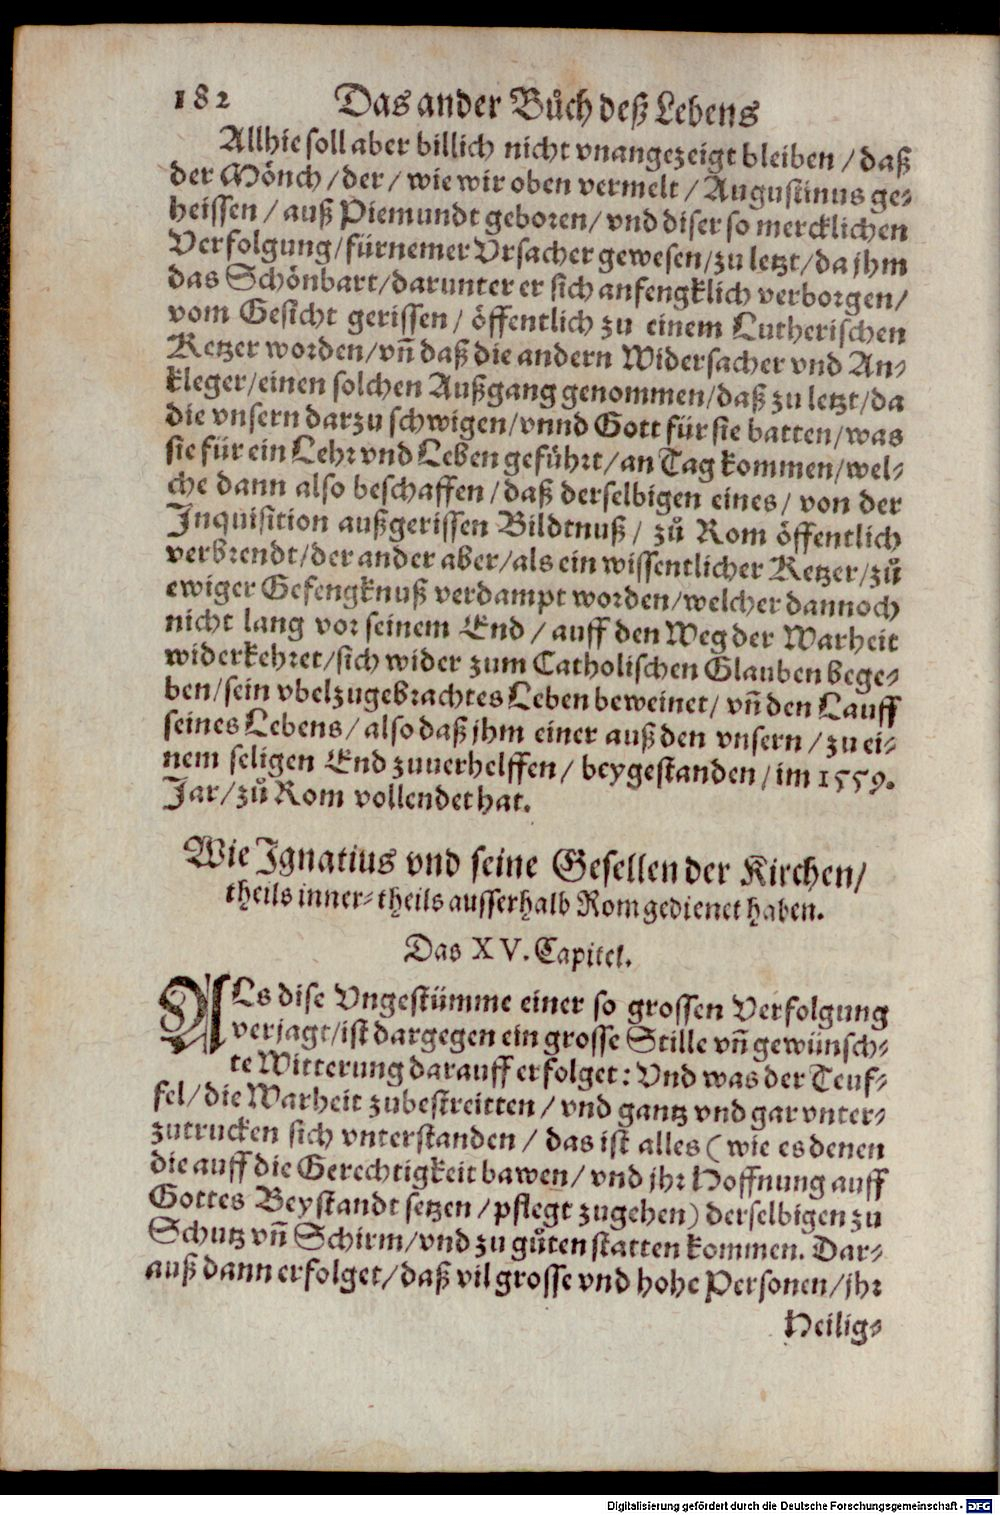 182 Das ander Bůch deß Lebens
Allhie soll aber billich nicht vnangezeigt bleiben / daß
der Mönch / der / wie wir oben vermelt / Augustinus ge-
heissen / auß Piemundt geboren / vnd diser so mercklichen
Verfolgung / fürnemer Vrsacher gewesen / zu letzt / da jhm
das Schönbart / darunter er sich anfengklich verborgen /
vom Gesicht gerissen / öffentlich zu einem Lutherischen
Ketzer worden / vñ daß die andern Widersacher vnd An-
kleger / einen solchen Außgang genommen / daß zu letzt / da
die vnsern darzu schwigen / vnnd Gott für sie batten / was
sie für ein Lehr vnd Leben geführt / an Tag kommen / wel-
che dann also beschaffen / daß derselbigen eines / von der
Inquisition außgerissen Bildtnuß / zů Rom öffentlich
verbrendt / der ander aber / als ein wissentlicher Ketzer / zů
ewiger Gefengknuß verdampt worden / welcher dannoch
nicht lang vor seinem End / auff den Weg der Warheit
widerkehret / sich wider zum Catholischen Glauben bege-
ben / sein vbelzugebrachtes Leben beweinet / vñ den Lauff
seines Lebens / also daß jhm einer auß den vnsern / zu ei-
nem seligen End zuuerhelffen / beygestanden / im 1559.
Jar / zů Rom vollendet hat.
Wie Ignatius vnd seine Gesellen der Kirchen /
theils inner- theils ausserhalb Rom gedienet haben.
Das XV. Capitel.
ALs dise Vngestümme einer so grossen Verfolgung
verjagt / ist dargegen ein grosse Stille vñ gewünsch-
te Witterung darauff erfolget: Vnd was der Teuf-
fel / die Warheit zubestreitten / vnd gantz vnd gar vnter-
zutrucken sich vnterstanden / das ist alles (wie es denen
die auff die Gerechtigkeit bawen / vnd jhr Hoffnung auff
Gottes Beystandt setzen / pflegt zugehen) derselbigen zu
Schutz vñ Schirm / vnd zu gůten statten kommen. Dar-
auß dann erfolget / daß vil grosse vnd hohe Personen / jhr
Heilig-
Digitalisierung gefördert durch die Deutsche Forschungsgemeinschaft - DFG